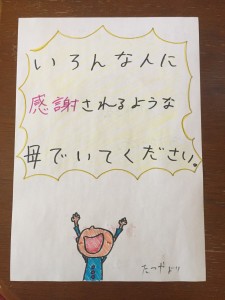 いろんな人に
感謝されるような
母でいてください。
たつやより